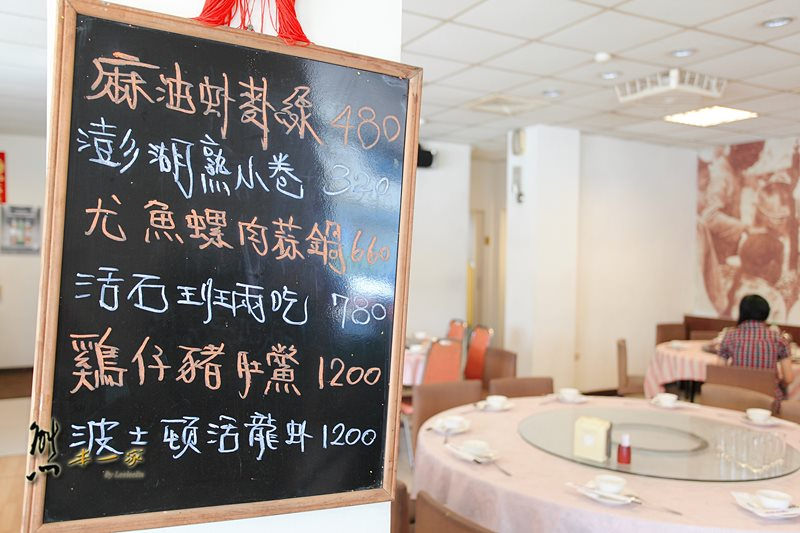 麻油蚵掛線 480
澎湖熟小卷 320
尤魚螺肉蒜鍋 660
活石班兩吃 780
鷄仔豬肚鱉 1200
波士頓活龍蚌 1200
熊本一家
By Leelaulin